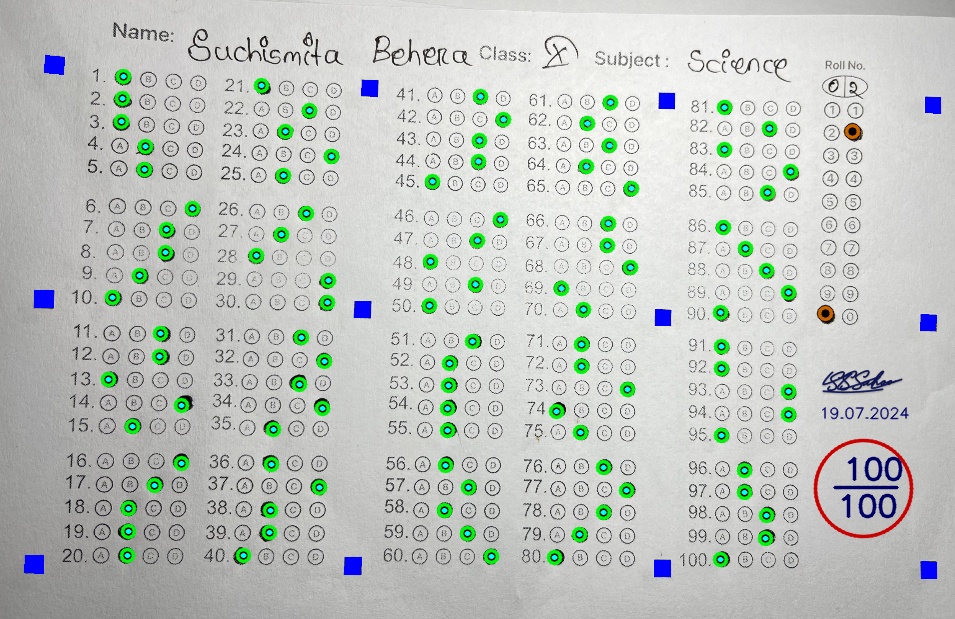 Name: Suchismita Behera Class: X Subject: Science
Roll No.
0 2
1. A B C D
2. A B C D
3. A B C D
4. A B C D
5. A B C D
6. A B C D
7. A B C D
8. A B C D
9. A B C D
10. A B C D
11. A B C D
12. A B C D
13. A B C D
14. A B C D
15. A B C D
16. A B C D
17. A B C D
18. A B C D
19. A B C D
20. A B C D
21. A B C D
22. A B C D
23. A B C D
24. A B C D
25. A B C D
26. A B C D
27. A B C D
28 A B C D
29. A B C D
30. A B C D
31. A B C D
32. A B C D
33. A B C D
34. A B C D
35. A B C D
36. A B C D
37. A B C D
38. A B C D
39. A B C D
40. A B C D
41. A B C D
42. A B C D
43. A B C D
44. A B C D
45. A B C D
46. A B C D
47. A B C D
48. A B C D
49 A B C D
50. A B C D
51. A B C D
52. A B C D
53. A B C D
54. A B C D
55. A B C D
56. A B C D
57. A B C D
58. A B C D
59. A B C D
60. A B C D
61. A B C D
62. A B C D
63. A B C D
64. A B C D
65. A B C D
66. A B C D
67. A B C D
68. A B C D
69. A B C D
70. A B C D
71. A B C D
72. A B C D
73. A B C D
74 A B C D
75. A B C D
76. A B C D
77. A B C D
78. A B C D
79. A B C D
80. A B C D
81. A B C D
82. A B C D
83. A B C D
84. A B C D
85. A B C D
86. A B C D
87. A B C D
88. A B C D
89. A B C D
90. A B C D
91. A B C D
92. A B C D
93. A B C D
94. A B C D
95. A B C D
96. A B C D
97. A B C D
98. A B C D
99. A B C D
100. A B C D
1 1
2
3 3
4 4
5 5
6 6
7 7
8 8
9 9
0
19.07.2024
100
100